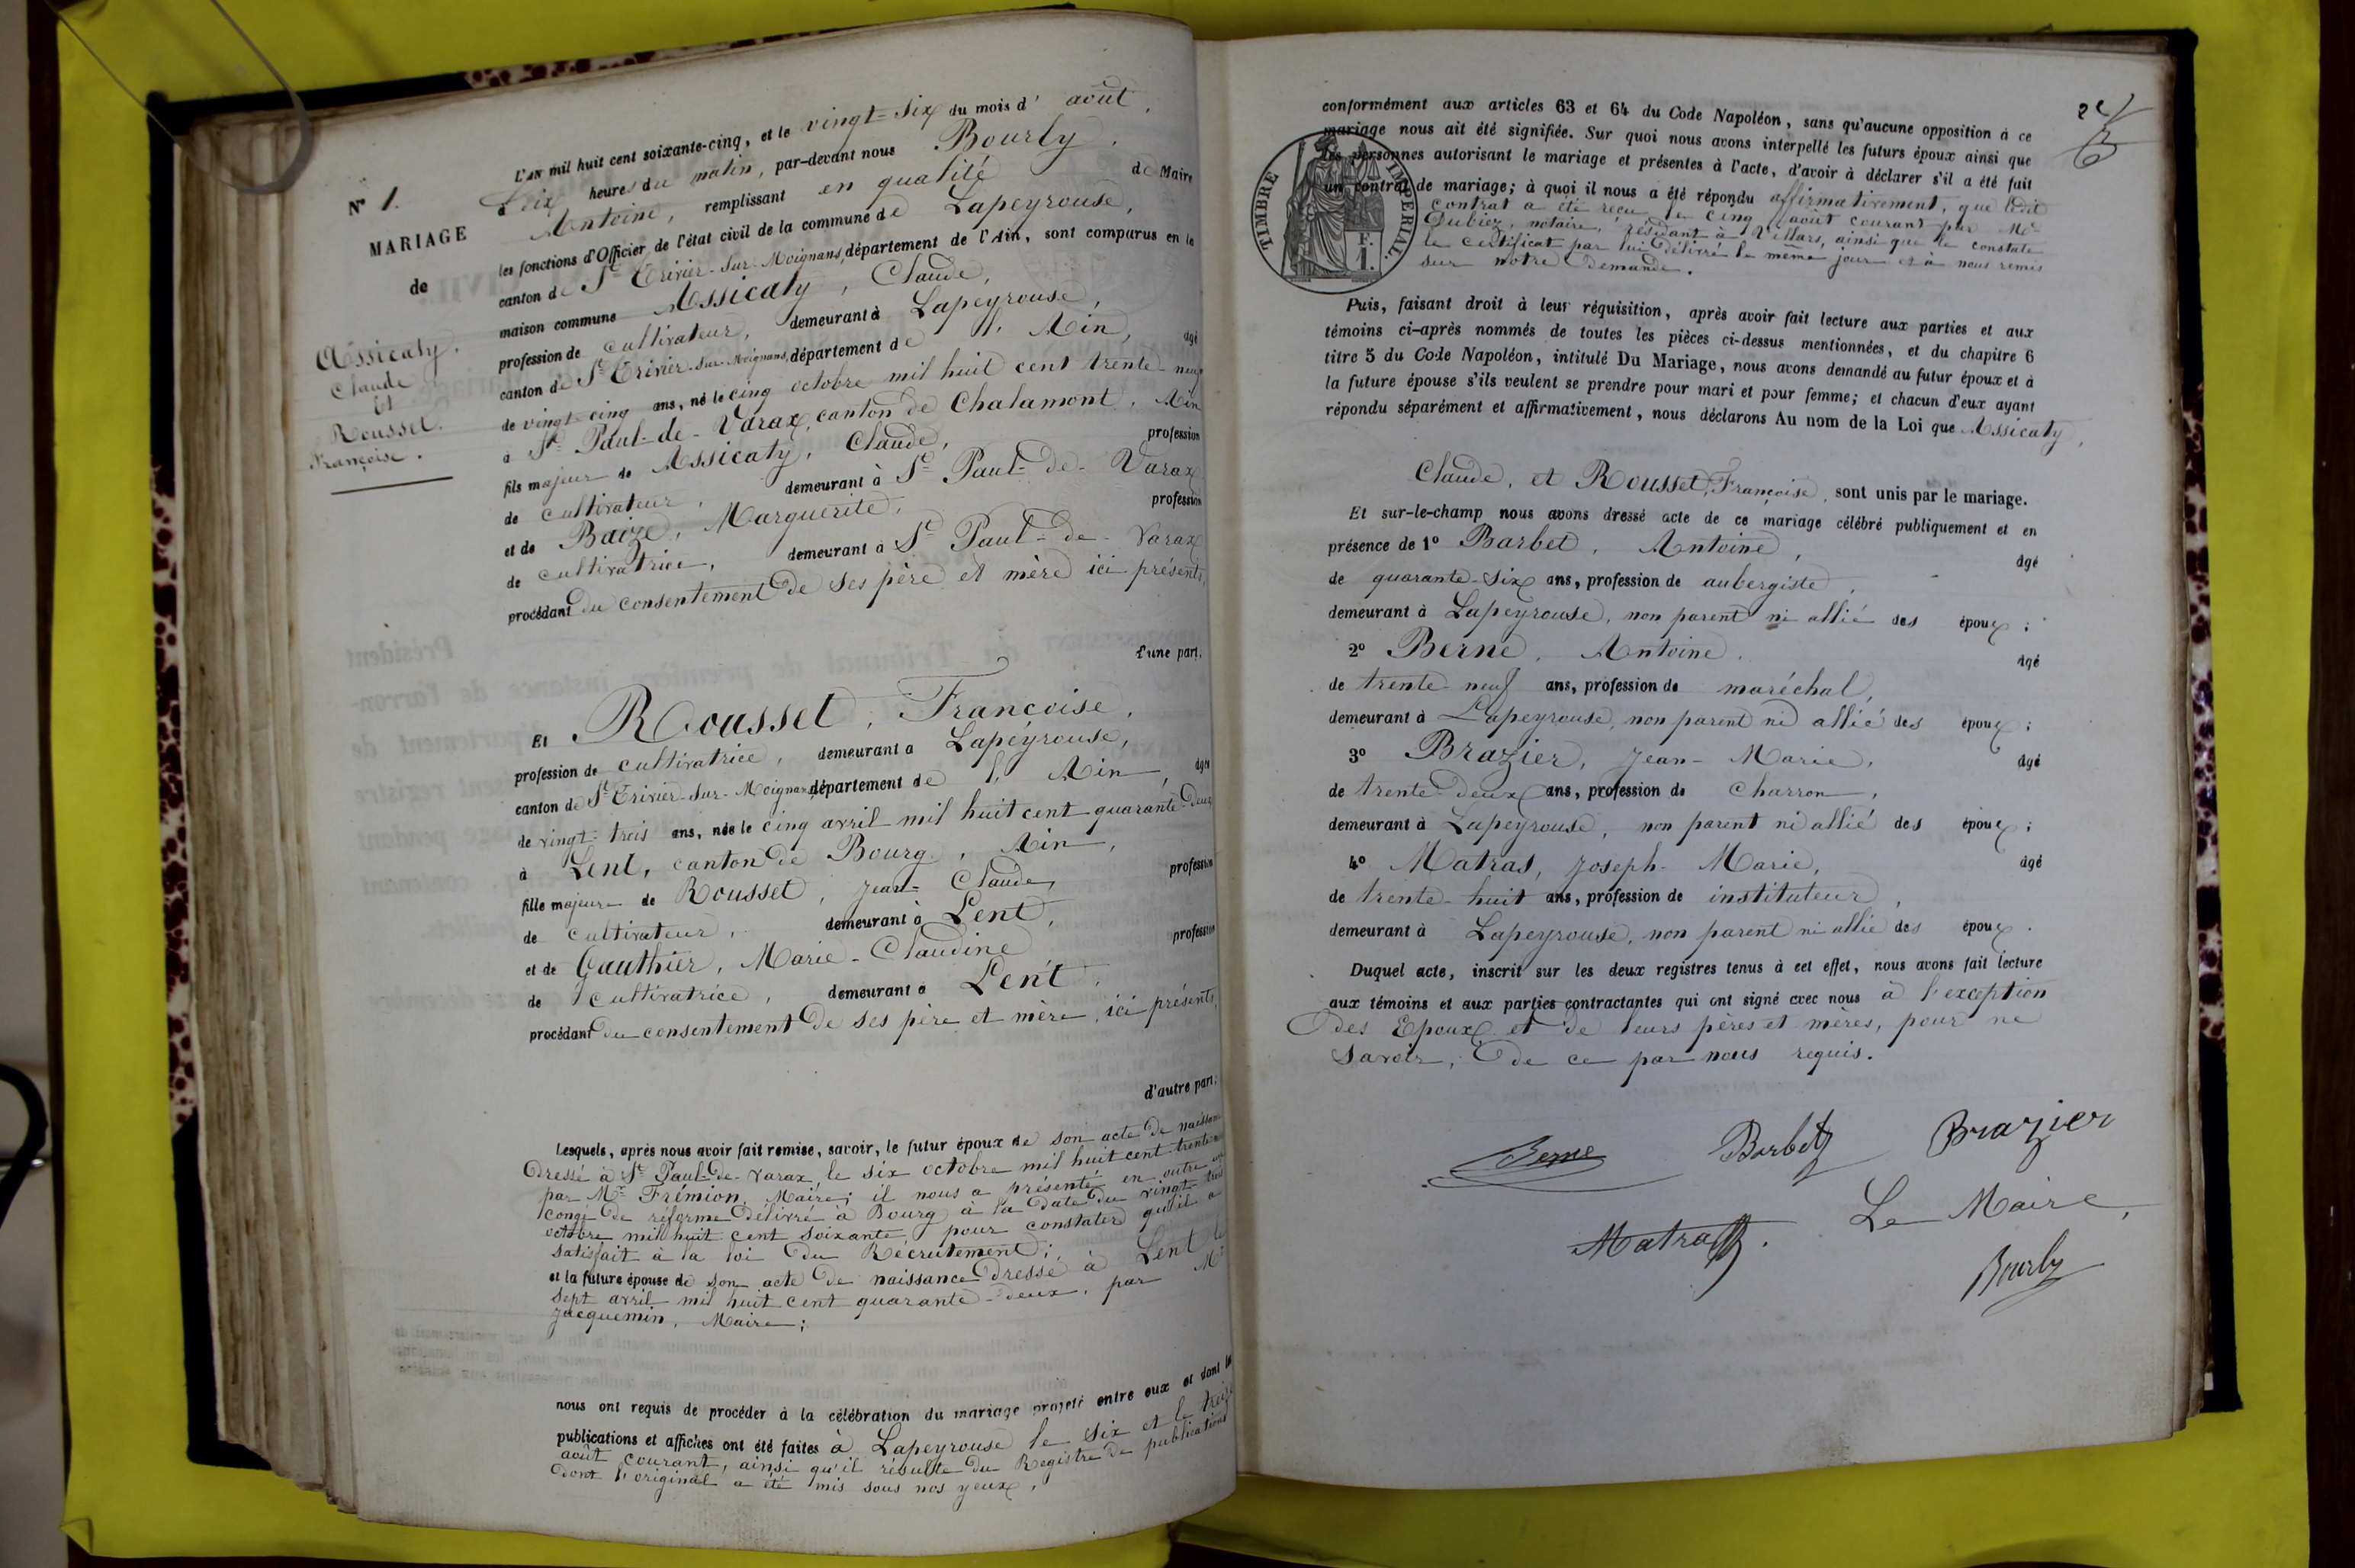 N° 1.
MARIAGE
de
Assicaty,
Claude
Et
Rousset.
Françoise.
L'AN mil huit cent soixante-cinq, et le vingt-six du mois d' août,
à dix heures du matin, par-devant nous Bourly,
Antoine, remplissant en qualité de Maire
les fonctions d'Officier de l'état civil de la commune de Lapeyrouse,
canton de St Trivier-sur-Moignans, département de l'Ain, sont comparus en la
maison commune Assicaty, Claude,
profession de cultivateur, demeurant à Lapeyrouse,
canton de St Trivier-sur-Moignans, département de l'Ain, âgé
de vingt-cinq ans, né le cinq octobre mil huit cent trente-neuf
à St Paul-de-Varax, canton de Chalamont, Ain
fils majeur de Assicaty, Claude, profession
de cultivateur, demeurant à St Paul-de-Varax
et de Baize, Marguerite, profession
de cultivatrice, demeurant à St Paul-de-Varax
procédant du consentement de ses père et mère ici présents,
d'une part.
Et Rousset, Françoise,
profession de cultivatrice, demeurant à Lapeyrouse,
canton de St Trivier-sur-Moignans, département de l'Ain, âgée
de vingt-trois ans, née le cinq avril mil huit cent quarante-deux
à Lent, canton de Bourg, Ain,
fille majeure de Rousset, Jean-Claude, profession
de cultivateur, demeurant à Lent,
et de Gauthier, Marie-Claudine profession
de cultivatrice, demeurant à Lent,
procédant du consentement de ses père et mère, ici présents,
d'autre part;
Lesquels, après nous avoir fait remise, savoir, le futur époux de son acte de naissance
dressé à St Paul-de-Varax, le six octobre mil huit cent trente
par Mr Frémion, Maire; il nous a présenté en outre un
congé de réforme délivré à Bourg à la date du vingt-trois
octobre mil huit cent soixante, pour constater qu'il a
satisfait à la loi du Recrutement;
et la future épouse de son acte de naissance dressé à Lent le
sept avril mil huit cent quarante-deux, par Mr
Jacquemin, Maire;
nous ont requis de procéder à la célébration du mariage projeté entre eux et dont les
publications et affiches ont été faites à Lapeyrouse le six et le treize
août courant, ainsi qu'il résulte du Registre de publications
dont l'original a été mis sous nos yeux,
conformément aux articles 63 et 64 du Code Napoléon, sans qu'aucune opposition à ce
mariage nous ait été signifiée. Sur quoi nous avons interpellé les futurs époux ainsi que
les personnes autorisant le mariage et présentes à l'acte, d'avoir à déclarer s'il a été fait
un contrat de mariage; à quoi il nous a été répondu affirmativement, que ledit
contrat a été reçu le cinq août courant par Me
Dubiez, notaire, résidant à Villars, ainsi que le constate
le certificat par lui délivré le même jour et à nous remis
sur notre demande.
TIMBRE IMPERIAL.
F.
1.
Puis, faisant droit à leur réquisition, après avoir fait lecture aux parties et aux
témoins ci-après nommés de toutes les pièces ci-dessus mentionnées, et du chapitre 6
titre 5 du Code Napoléon, intitulé Du Mariage, nous avons demandé au futur époux et à
la future épouse s'ils veulent se prendre pour mari et pour femme; et chacun d'eux ayant
répondu séparément et affirmativement, nous déclarons Au nom de la Loi que Assicaty,
Claude, et Rousset, Françoise, sont unis par le mariage.
Et sur-le-champ nous avons dressé acte de ce mariage célébré publiquement et en
présence de 1° Barbet, Antoine, âgé
de quarante-six ans, profession de aubergiste,
demeurant à Lapeyrouse, non parent ni allié des époux;
2° Berne, Antoine. âgé
de trente neuf ans, profession de maréchal,
demeurant à Lapeyrouse, non parent ni allié des époux;
3° Brazier, Jean-Marie, âgé
de trente-deux ans, profession de Charron,
demeurant à Lapeyrouse, non parent ni allié des époux;
4° Matras, Joseph-Marie, âgé
de trente-huit ans, profession de instituteur,
demeurant à Lapeyrouse, non parent ni allié des époux.
Duquel acte, inscrit sur les deux registres tenus à cet effet, nous avons fait lecture
aux témoins et aux parties contractantes qui ont signé avec nous à l'exception
des Epoux et de leurs pères et mères, pour ne
savoir, de ce par nous requis.
Berne Barbet Brazier
Matras. Le Maire,
Bourly